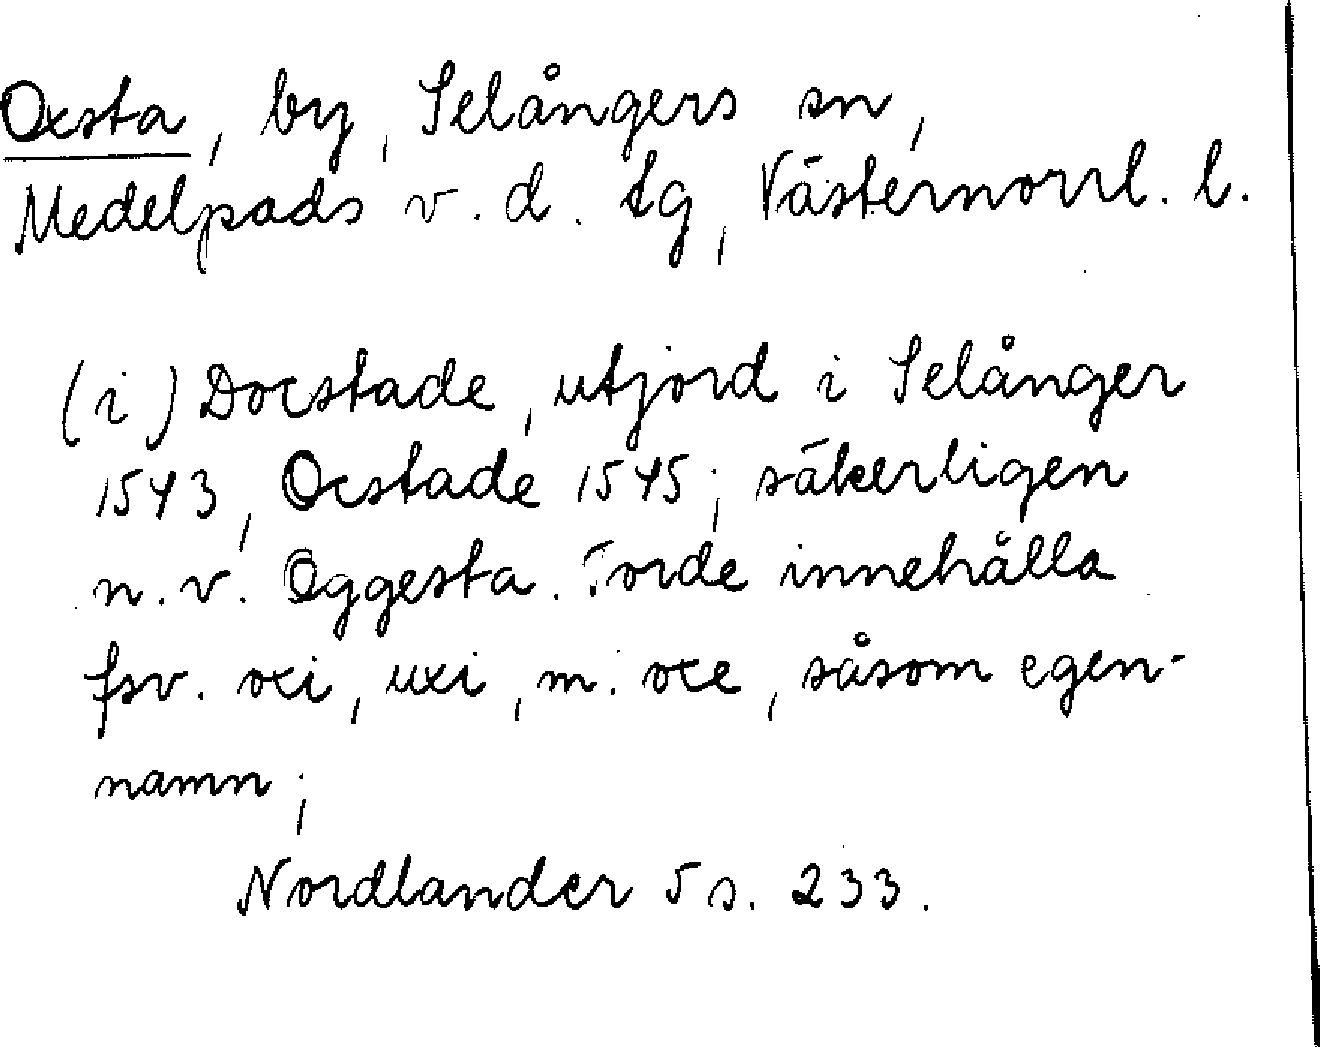 Oxsta, by, Selångers sn,
Medelpads v. d. tg, Västernorrl. l.
(i) Docstade, utjord i Selånger
1543, Ocstade 1545; säkerligen
n. v. Oggesta. Torde innehålla
fsv. oxi, uxi, m. oxe, såsom egen-
namn;
Nordlander 5 s. 233.